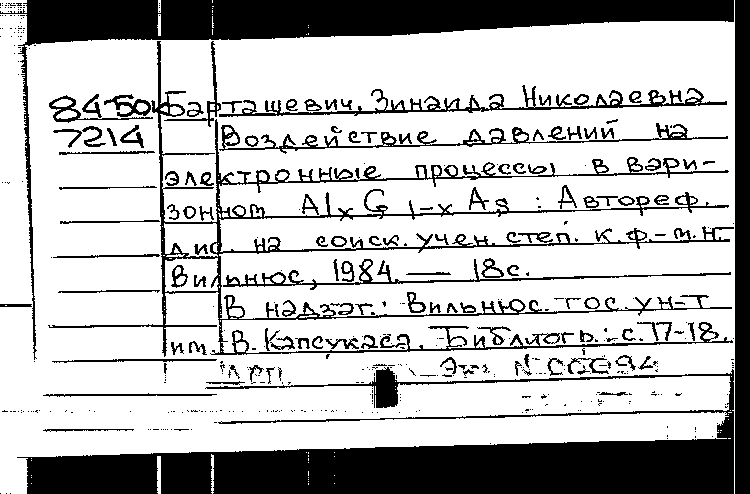 84-5ок Барташевич, Зинаида Николаевна
7214 Воздействие давлений на
электронные процессы в вари-
зонном AlxG 1-x As : Автореф.
дис. на соиск. учен. степ. к.ф.-м.н.
Вильнюс, 1984. — 18с.
В надзаг.: Вильнюс. гос. ун-т
им. В. Капсукаса. Библиогр.: с. 17-18.